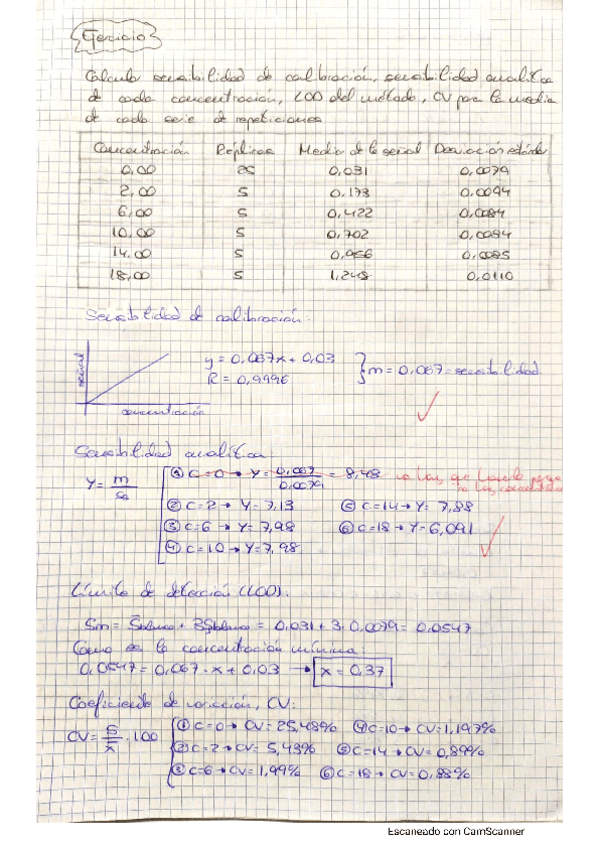 Ejercicio
Calcula sensibilidad de calibración, sensibilidad analítica
de cada concentración, LOD del método, CV para la media
de cada serie de repeticiones
Concentración Réplicas Media de la señal Desviación estándar
0,00 25 0,031 0,0079
2,00 5 0,173 0,0094
6,00 5 0,422 0,0084
10,00 5 0,702 0,0084
14,00 5 0,956 0,0085
18,00 5 1,248 0,0110
Sensibilidad de calibración:
señal
concentración
y = 0,067x + 0,03
R = 0,9996
m = 0,067 = sensibilidad
Sensibilidad analítica:
γ = m/s
① C=0 → γ = 0,067/0,0079 = 8,48 no hay que hacerlo
② C=2 → γ = 7,13 ⑤ C=14 → γ = 7,88
③ C=6 → γ = 7,98 ⑥ C=18 → γ = 6,091
④ C=10 → γ = 7,98
Límite de detección (LOD):
Sm = S̄blanco + 3Sblanco = 0,031 + 3·0,0079 = 0,0547
Cómo es la concentración mínima:
0,0547 = 0,067·x + 0,03 → x = 0,37
Coeficiente de variación, CV:
CV = S/x̄ · 100
① C=0 → CV = 25,48% ④ C=10 → CV = 1,197%
② C=2 → CV = 5,43% ⑤ C=14 → CV = 0,89%
③ C=6 → CV = 1,99% ⑥ C=18 → CV = 0,88%
Escaneado con CamScanner